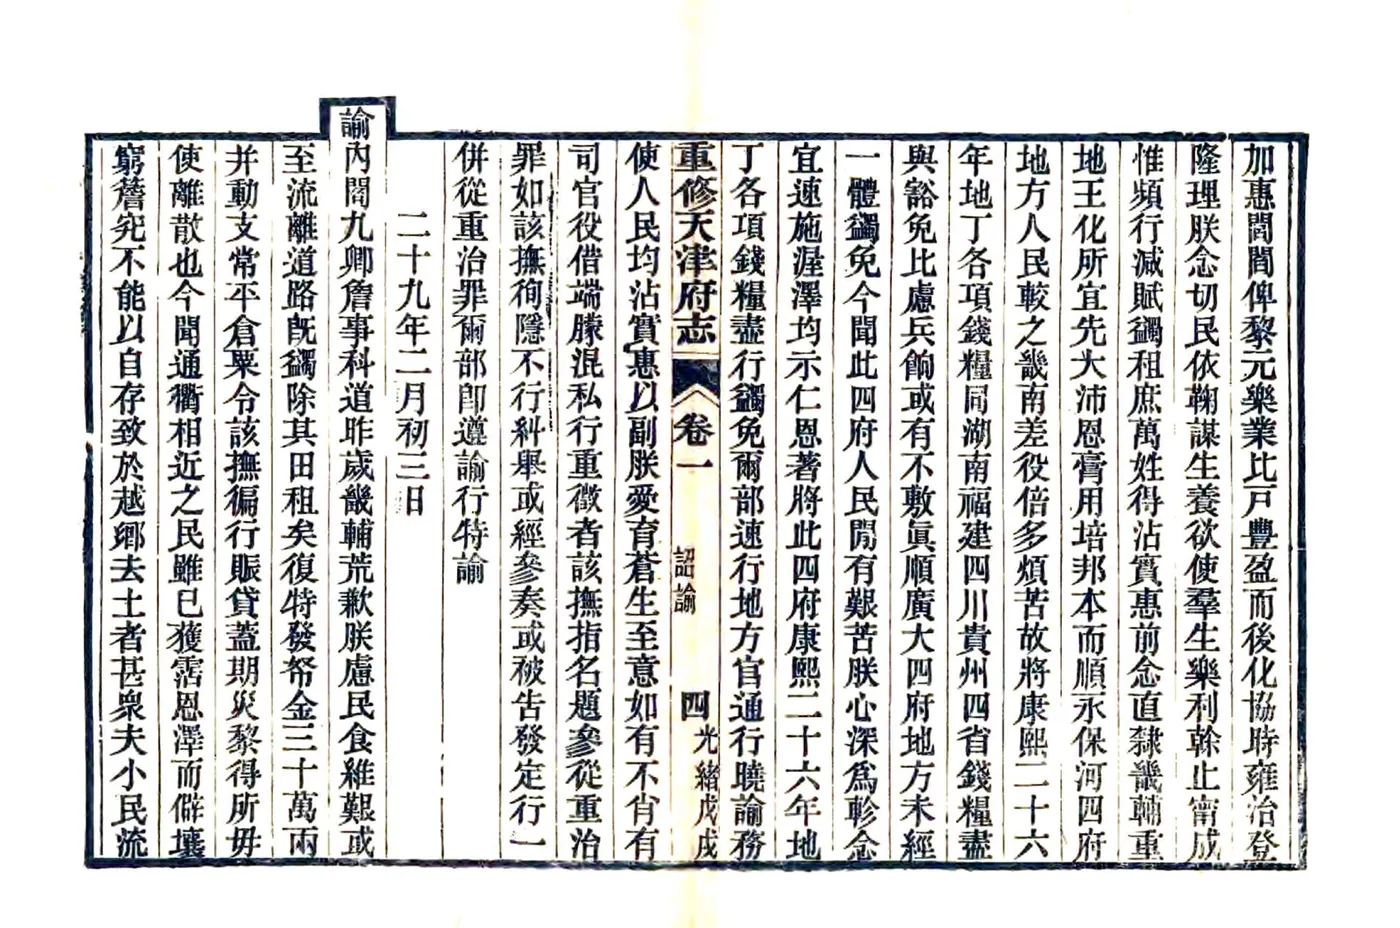 加惠閭閻俾黎元樂業比戶豐盈而後化協時雍治登
隆理朕念切民依鞠謀生養欲使羣生樂利幹止甯成
惟頻行減賦蠲租庶萬姓得沾實惠前念直隸畿輔重
地王化所宜先大沛恩膏用培邦本而順永保河四府
地方人民較之畿南差役倍多煩苦故將康熙二十六
年地丁各項錢糧同湖南福建四川貴州四省錢糧盡
與豁免比慮兵餉或有不敷眞順廣大四府地方未經
一體蠲免今聞此四府人民閒有艱苦朕心深爲軫念
宜速施渥澤均示仁恩著將此四府康熙二十六年地
丁各項錢糧盡行蠲免爾部速行地方官通行曉諭務
重修天津府志 卷一 詔諭 四 光緖戊戌
使人民均沾實惠以副朕愛育蒼生至意如有不肖有
司官役借端朦混私行重徵者該撫指名題參從重治
罪如該撫徇隱不行糾舉或經參奏或被告發定行一
併從重治罪爾部卽遵諭行特諭
二十九年二月初三日
諭內閣九卿詹事科道昨歲畿輔荒歉朕慮民食維艱或
至流離道路旣蠲除其田租矣復特發帑金三十萬兩
并動支常平倉粟令該撫徧行賑貸蓋期災黎得所毋
使離散也今聞通衢相近之民雖已獲霑恩澤而僻壤
窮簷究不能以自存致於越鄉去土者甚衆夫小民流